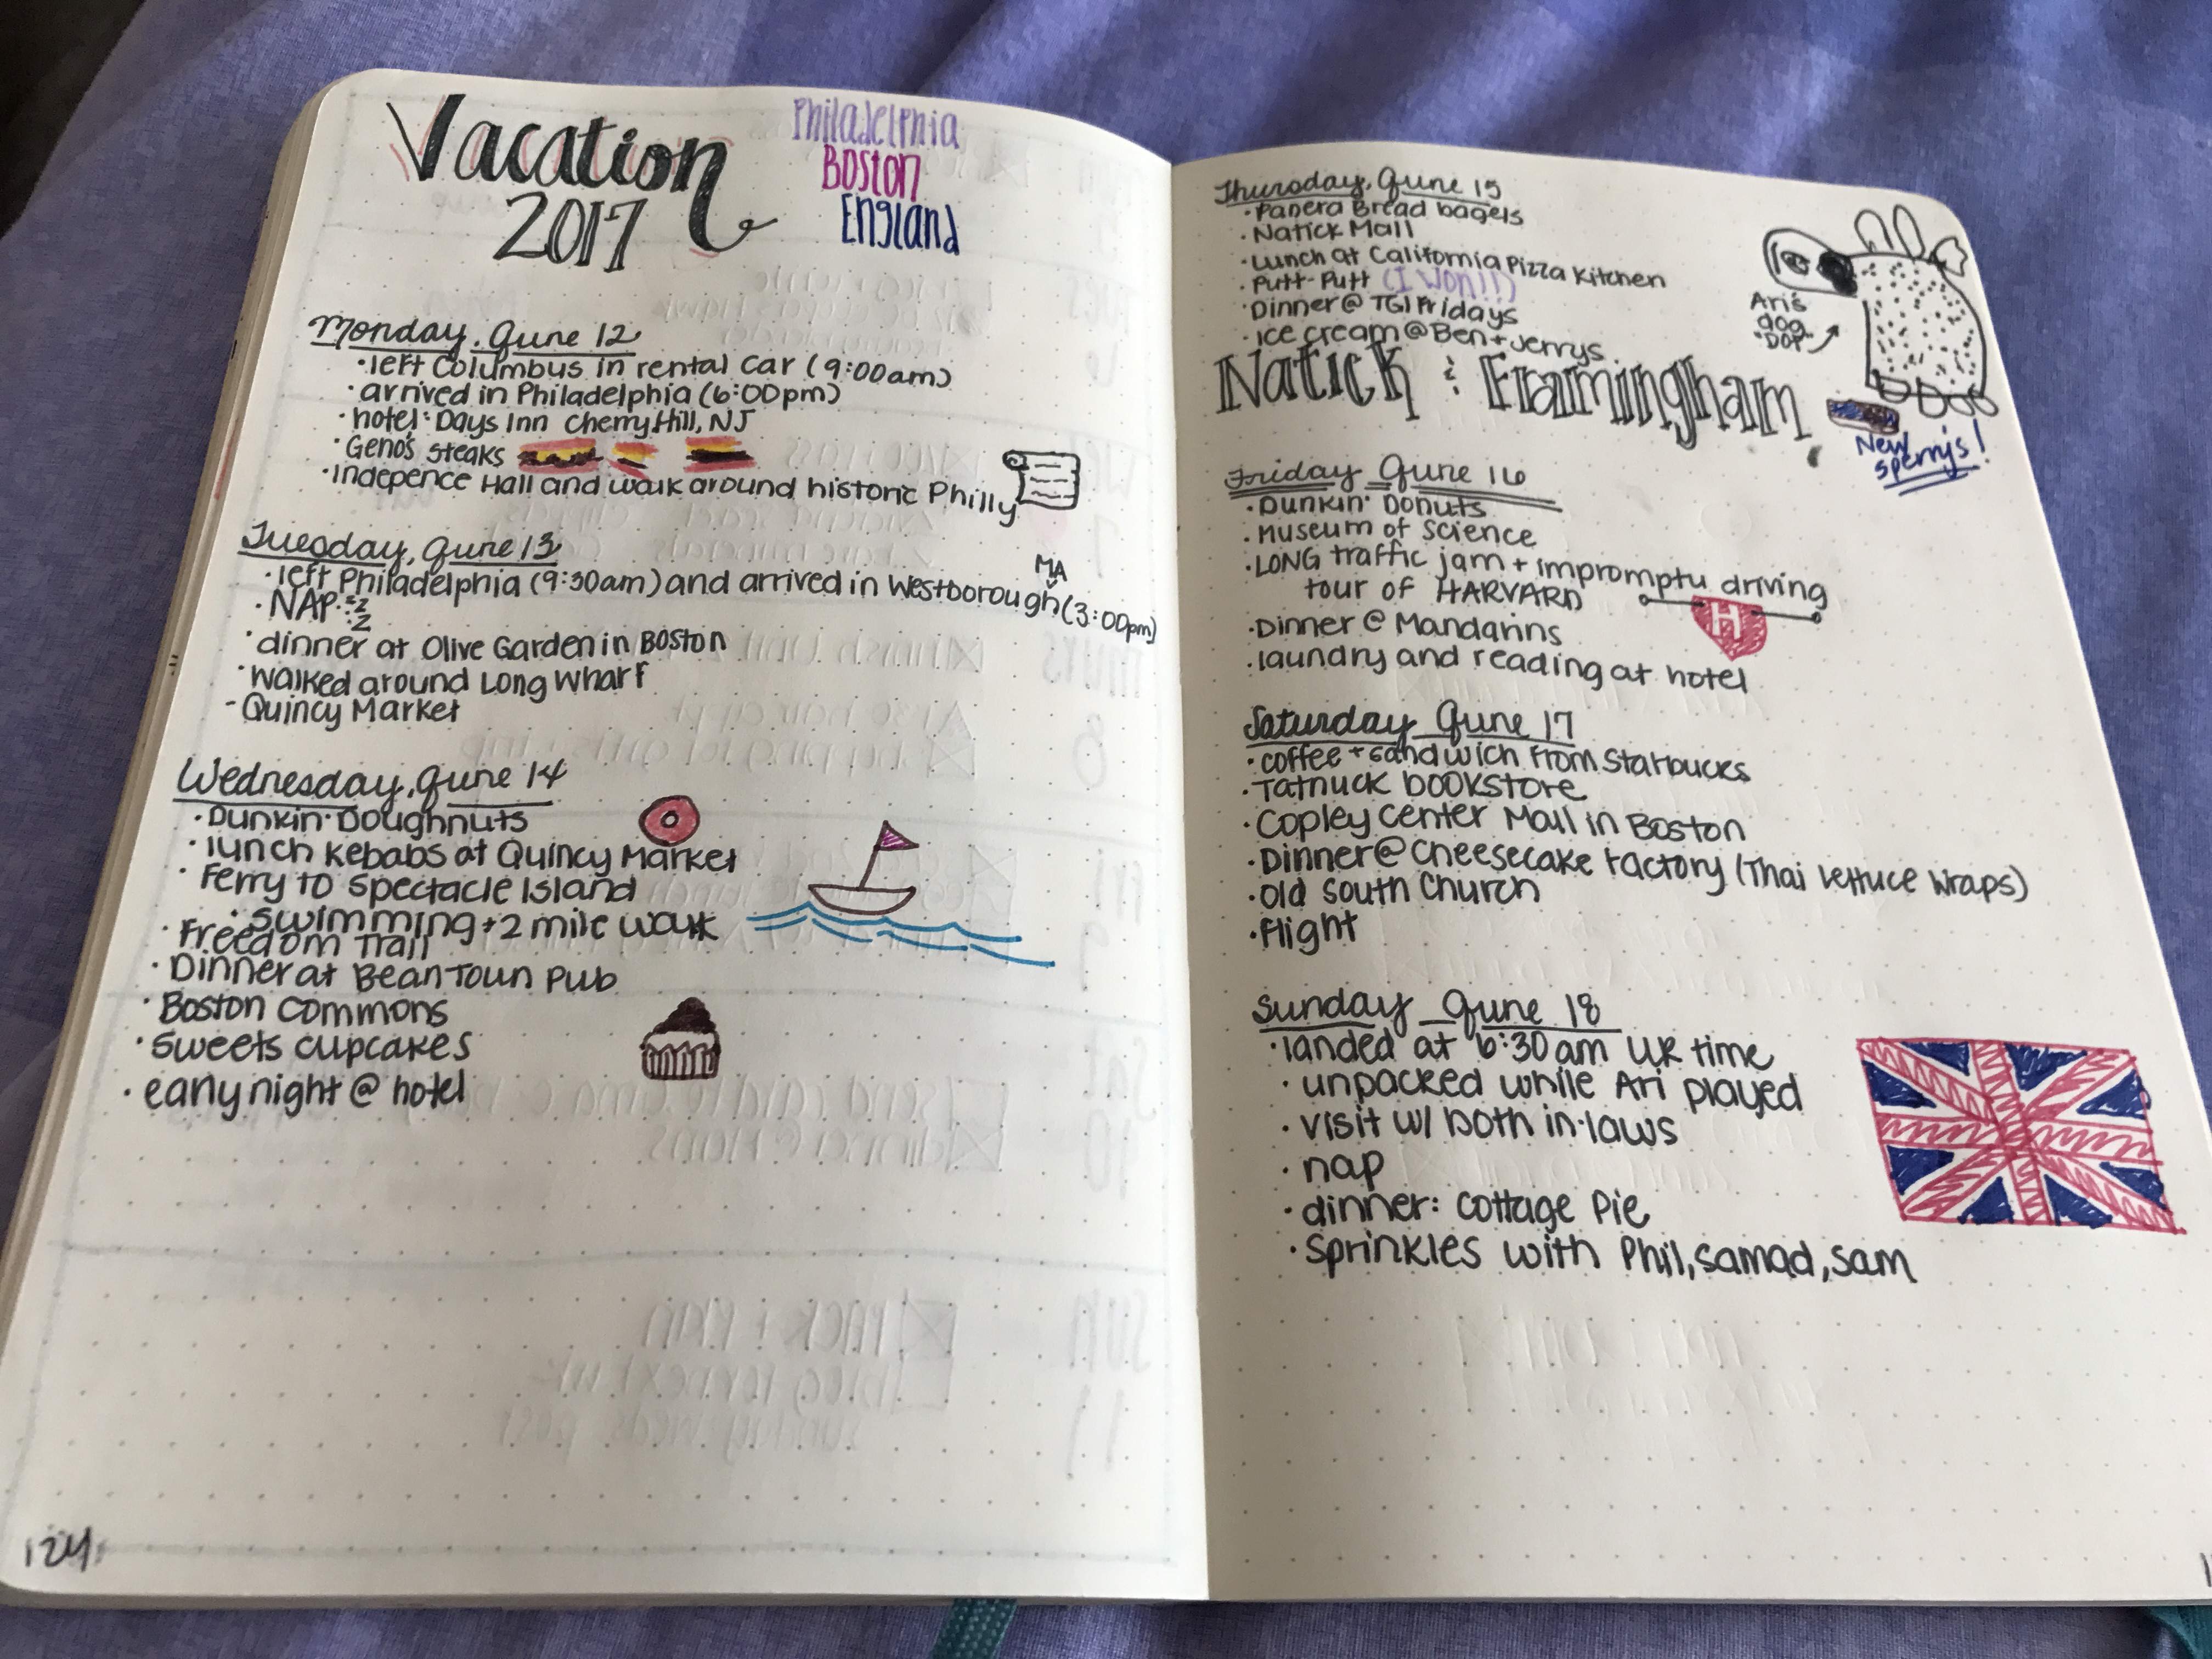 Vacation
2017
Philadelphia
Boston
England
Monday, June 12
· left Columbus in rental car (9:00am)
· arrived in Philadelphia (6:00pm)
· hotel: Days Inn Cherry Hill, NJ
· Geno's Steaks
· Indepence Hall and walk around historic Philly
Tuesday, June 13
· left Philadelphia (9:30am) and arrived in Westborough MA (3:00pm)
· NAP zzz
· dinner at Olive Garden in Boston
· walked around Long Wharf
- Quincy Market
Wednesday, June 14
· Dunkin· Doughnuts
· lunch kebabs at Quincy Market
· Ferry to Spectacle Island
· swimming + 2 mile walk
· Freedom Trail
· Dinner at BeanTown Pub
· Boston Commons
· Sweets cupcakes
· early night @ hotel
124
Thursday, June 15
· Panera Bread bagels
· Natick Mall
· Lunch at California Pizza Kitchen
· Putt-Putt (I won!!)
· Dinner @ TGI Fridays
· ice cream @ Ben + Jerrys
Ari's
dog
"DOP"
Natick & Framingham
New
sperry's!
Friday June 16
· Dunkin' Donuts
· Museum of Science
· LONG traffic jam + impromptu driving
tour of HARVARD
H
· Dinner @ Mandarins
· laundry and reading at hotel
Saturday June 17
· coffee + sandwich from Starbucks
· Tatnuck bookstore
· Copley Center Mall in Boston
· Dinner @ Cheesecake Factory (Thai Lettuce Wraps)
· Old South Church
· Flight
Sunday June 18
· landed at 6:30am UK time
· unpacked while Ari played
· visit w/ both in·laws
· nap
· dinner: Cottage Pie
· Sprinkles with Phil, Samad, Sam